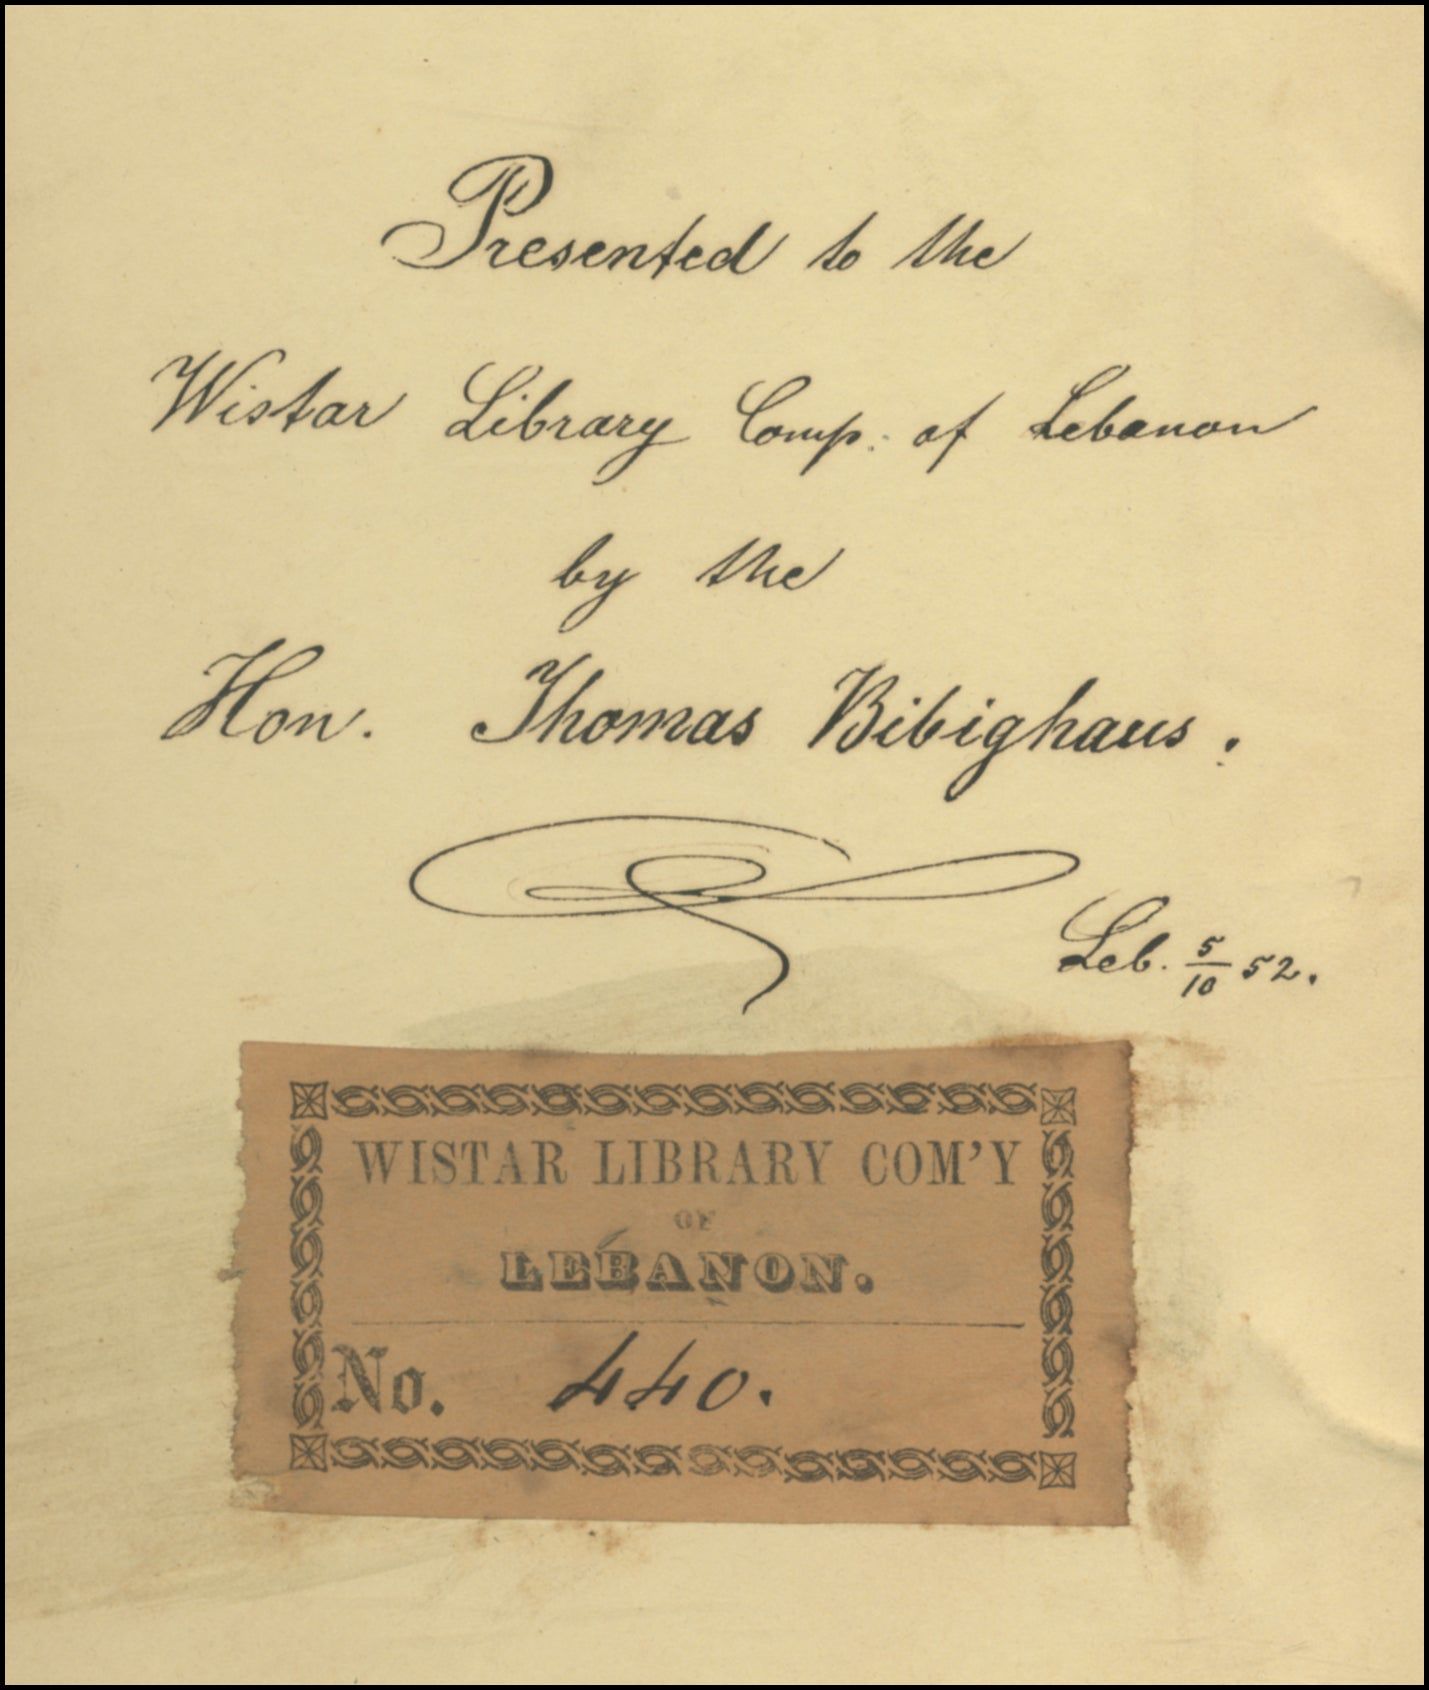 Presented to the
Wistar Library Comp: of Lebanon
by the
Hon. Thomas Bibighaus.
Leb. 5/10 52.
WISTAR LIBRARY COM'Y
OF
LEBANON.
No. 440.